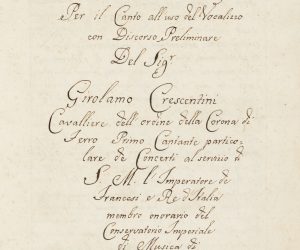 Per il Canto all'uso del Vocalizo
con Discorso Preliminare
Del Sig.r
Girolamo Crescentini
Cavalliere dell'ordine della Corona di
Ferro Primo Cantante partico-
lare de Concerti al servizio di
S. M. l'Imperatore de
Francesi e Re d'Italia
membro onorario del
Conservatorio Imperiale
di Musica di